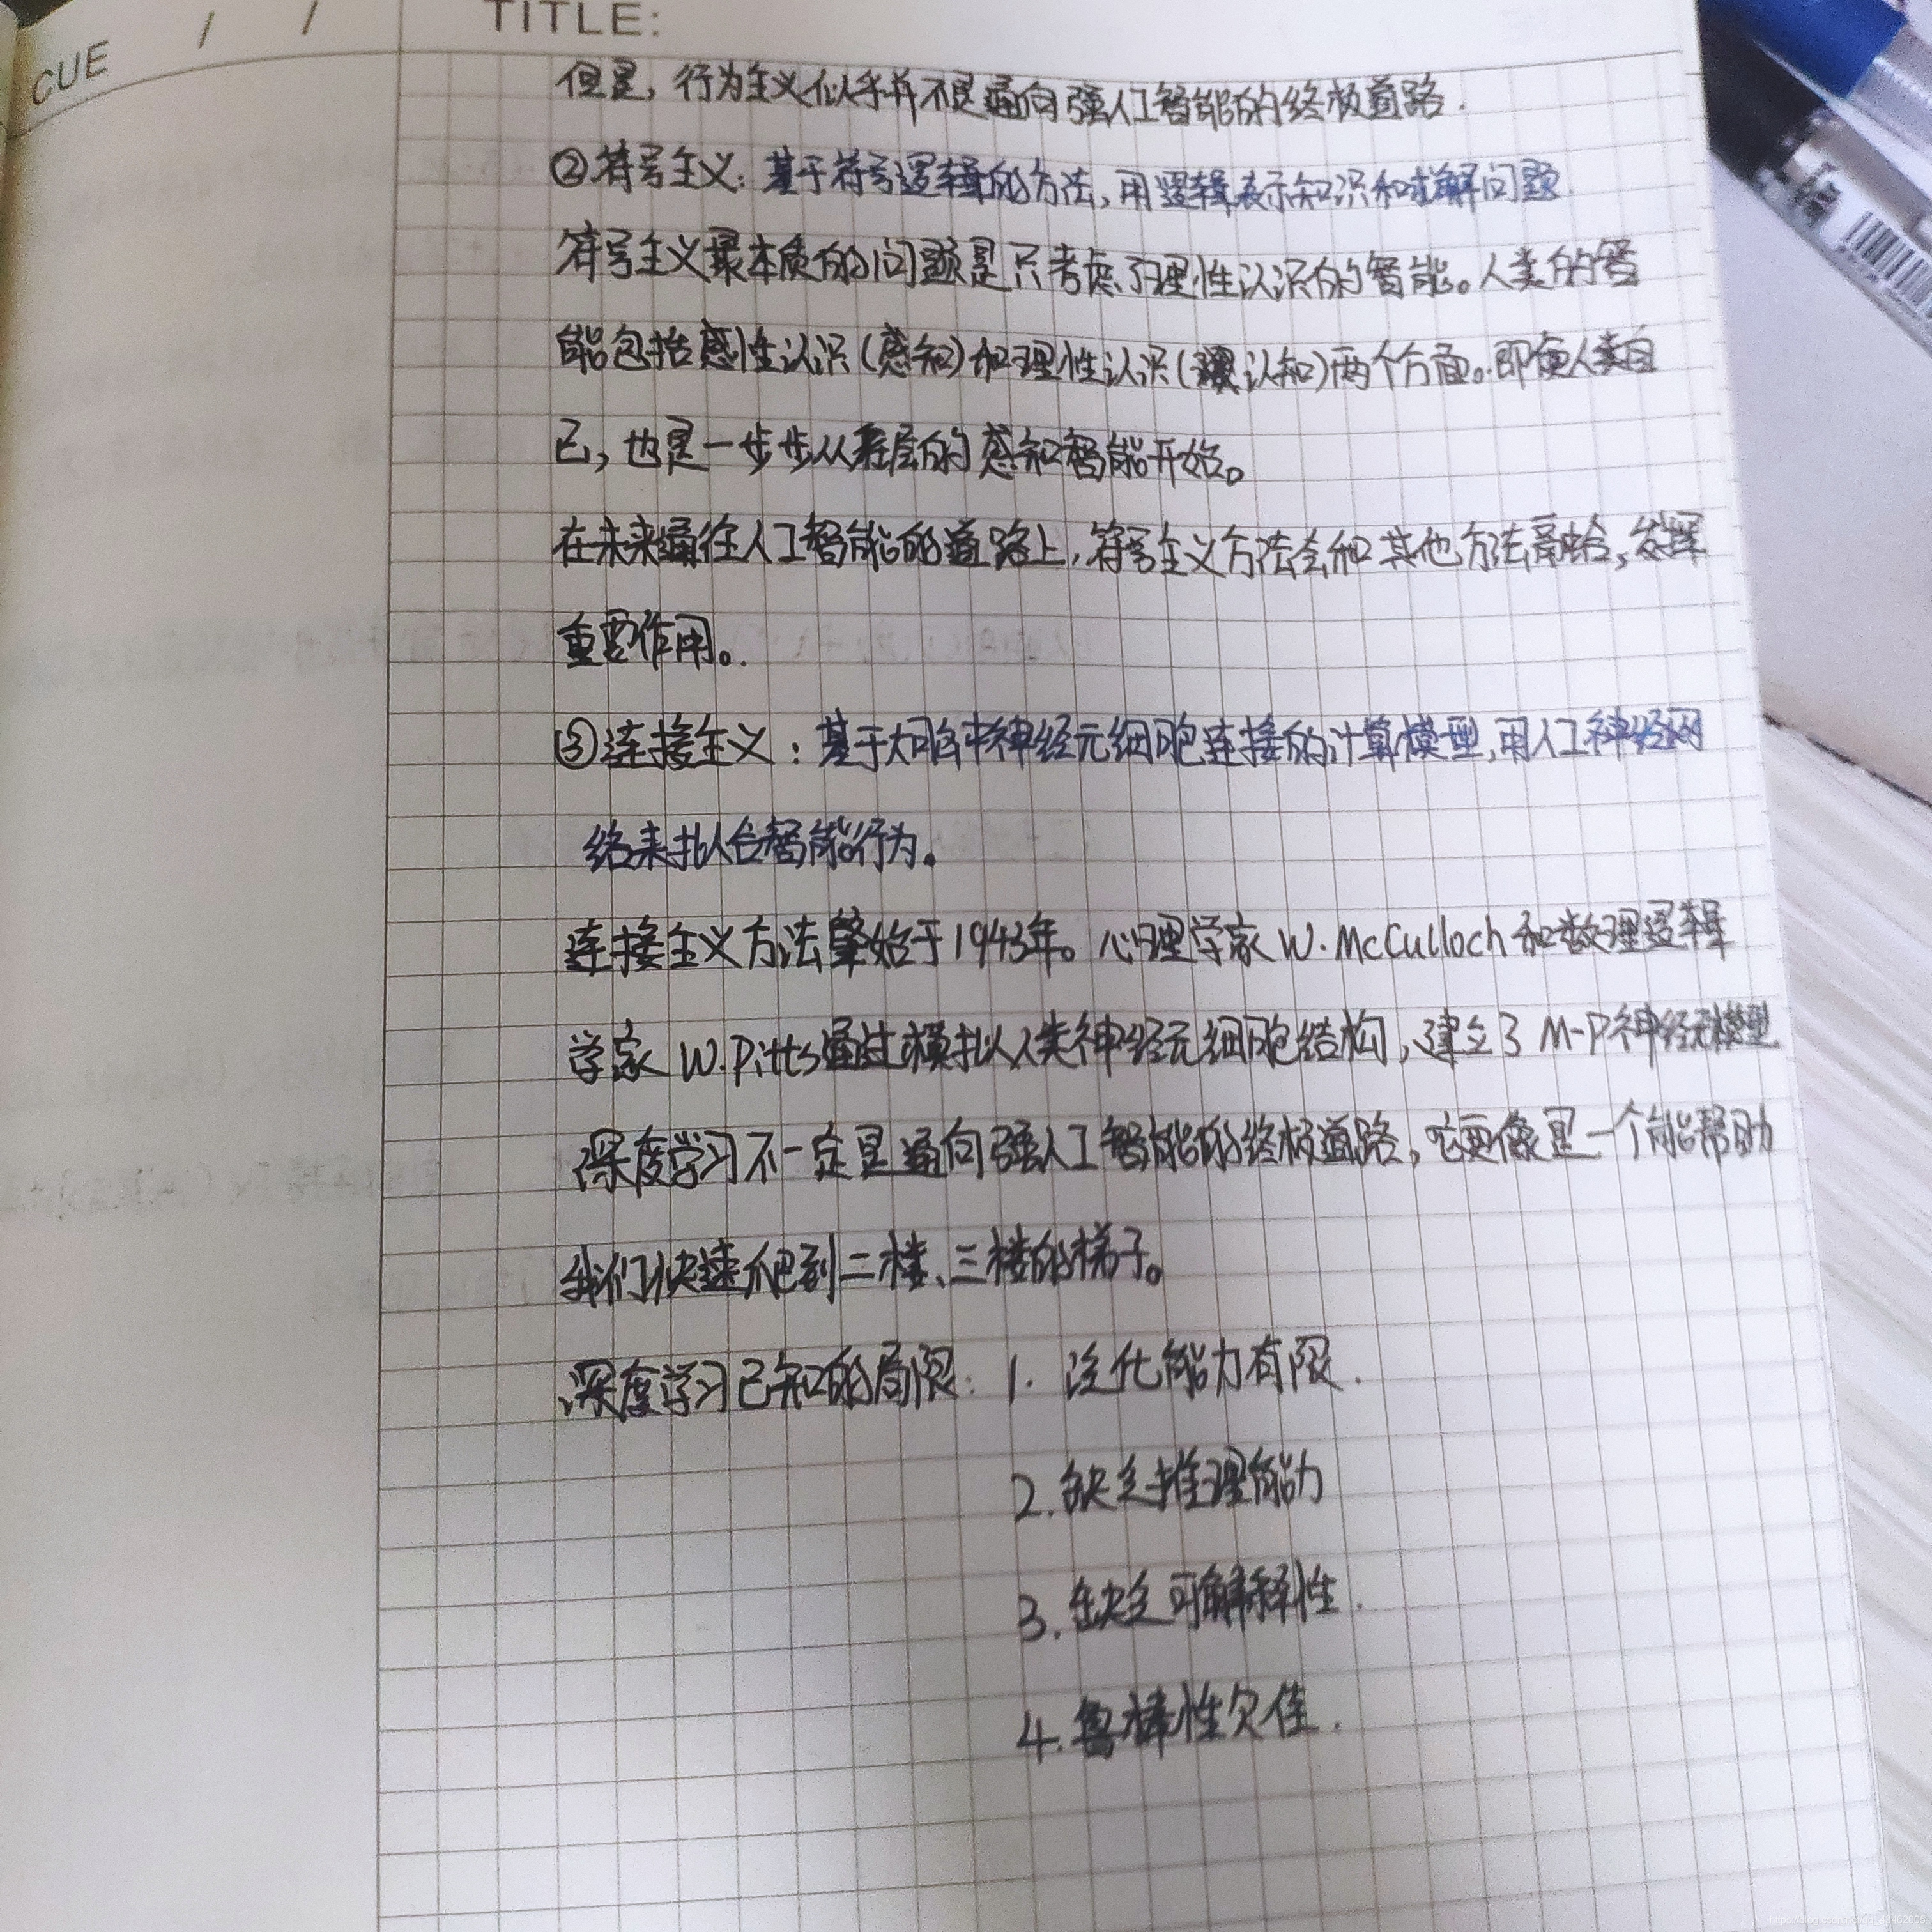 CUE / / TITLE:
但是，行为主义似乎并不是通向强人工智能的终极道路.
②符号主义：基于符号逻辑的方法，用逻辑表示知识和求解问题
符号主义最本质的问题是只考虑了理性认识的智能。人类的智
能包括感性认识(感知)和理性认识(认知)两个方面。即便人类自
己，也是一步步从底层的感知智能开始。
在未来通往人工智能的道路上，符号主义方法会和其他方法融合，发挥
重要作用。
③连接主义：基于大脑中神经元细胞连接的计算模型，用人工神经网
络来拟合智能行为。
连接主义方法肇始于1943年。心理学家W.McCulloch和数理逻辑
学家W.Pitts通过模拟人类神经元细胞结构，建立了M-P神经元模型
深度学习不一定是通向强人工智能的终极道路，它更像是一个能帮助
我们快速爬到二楼、三楼的梯子。
深度学习已知的局限：1. 泛化能力有限.
2.缺乏推理能力
3.缺乏可解释性.
4.鲁棒性欠佳.